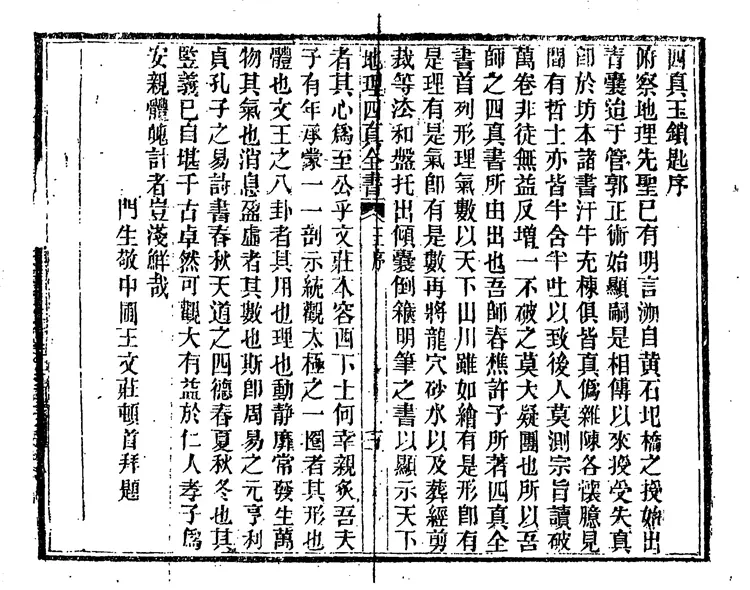 四真玉鎖匙序
俯察地理先聖已有明言溯自黃石圯橋之授始出
青囊迨于管郭正術始顯嗣是相傳以來授受失真
卽於坊本諸書汗牛充棟俱皆真僞雜陳各懷臆見
間有哲士亦皆半含半吐以致後人莫測宗旨讀破
萬卷非徒無益反增一不破之莫大疑團也所以吾
師之四真書所由出也吾師春樵許子所著四真全
書首列形理氣數以天下山川雖如繪有是形卽有
是理有是氣卽有是數再將龍穴砂水以及葬經剪
裁等法和盤托出傾囊倒篋明筆之書以顯示天下
地理四真全書 玉序 三
者其心爲至公乎文莊本容西下士何幸親炙吾夫
子有年承蒙一一剖示統觀太極之一圈者其形也
體也文王之八卦者其用也理也動靜靡常發生萬
物其氣也消息盈虛者其數也斯卽周易之元亨利
貞孔子之易詩書春秋天道之四德春夏秋冬也其
監義已自堪千古卓然可觀大有益於仁人孝子爲
安親體魄計者豈淺鮮哉
門生敬中圃王文莊頓首拜題